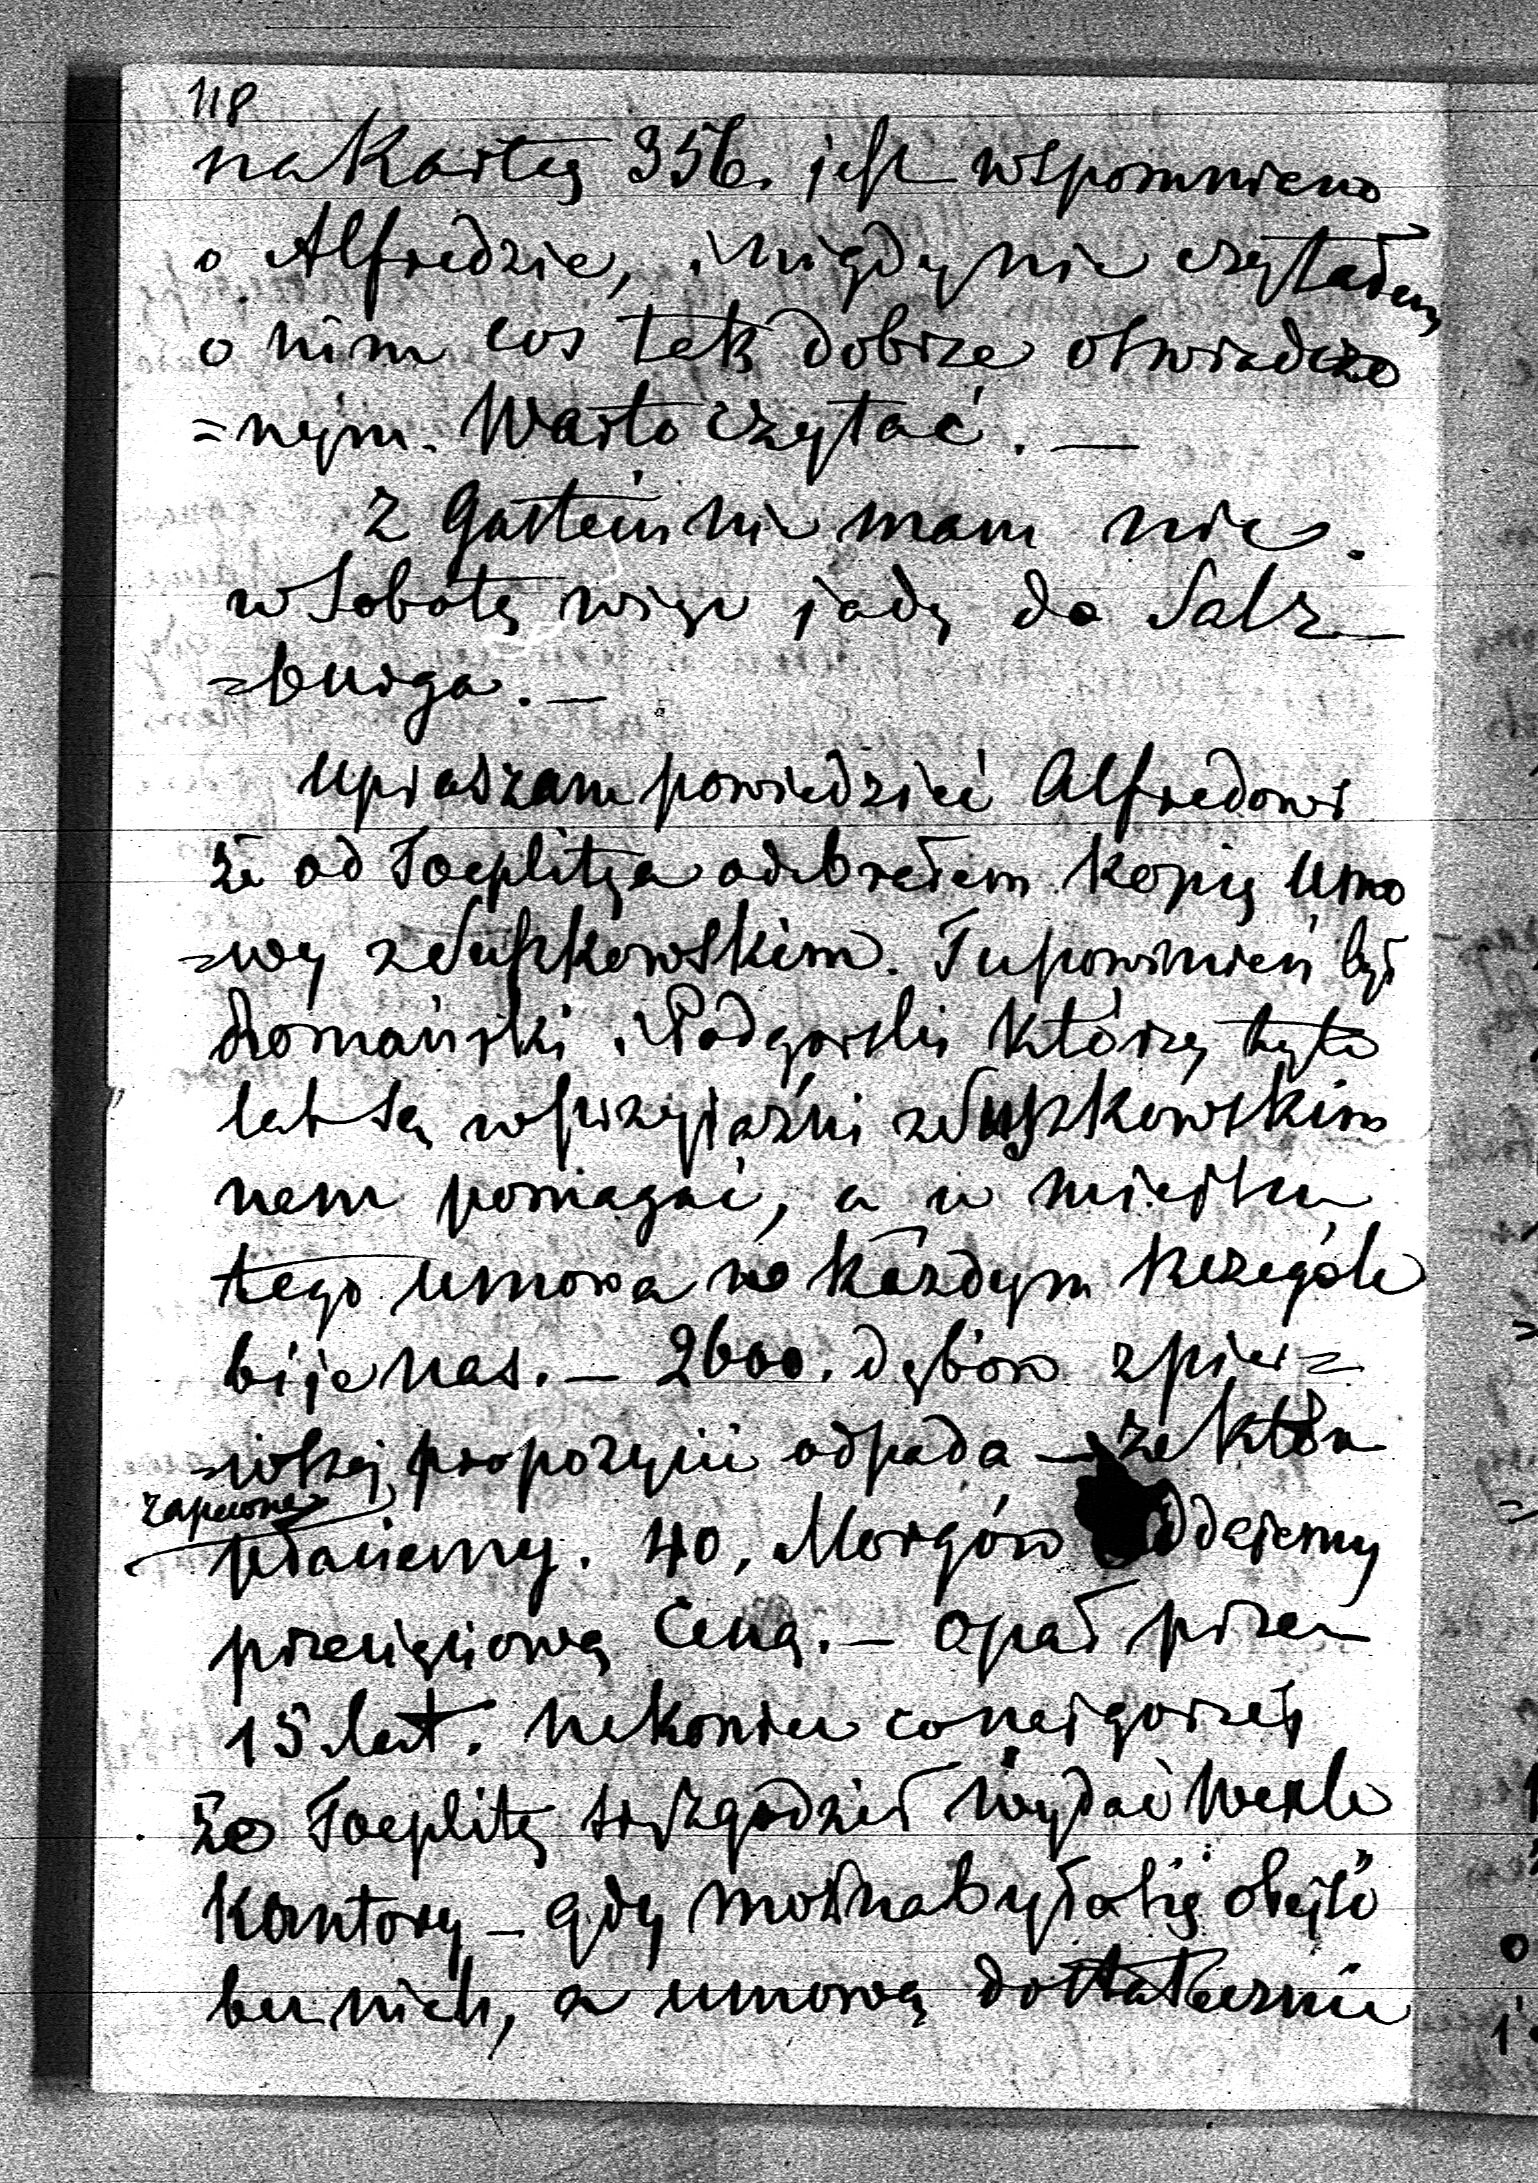 118
na Kartę 356. jest wspomniano
o Alfredzie, i nigdy nie czytałem
o nim cos tak dobrze oświadczo
=nym. Warto czytać. —
Z Gastein nie mam nic.
w Sobotę więc jadę do Salz—
=burga. —
Upraszam powiedzieć Alfredowi
że od Toeplitza odebrałem kopię Umo
=wy z Łuszkowskim. Tu powinien był
Romański i Podgorski którzy tyle
lat są w przyjaźni z Łuszkowskim
nam pomagać, a w miejscu
tego umowa w każdym szczególe
bije nas. — 2600. dębów z pier=
=wszej propozycii odpada — za które
zapewne
płaciemy. 40, Morgów oddajemy
przecięciową Ceną. — Opał przez
15 lat. Nakoniec co najgorzej
że Toeplitz się zgodził wydać Wexle
Kantory — gdy można było się obejść
bez nich, a umową dostatecznie